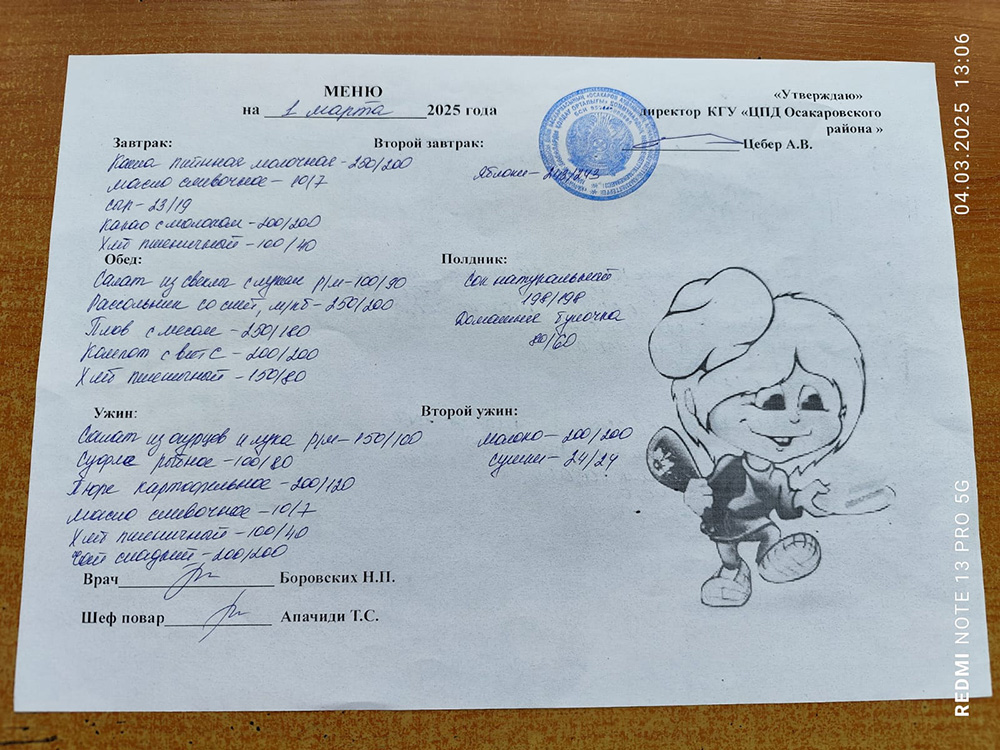 МЕНЮ
на 1 марта 2025 года
«Утверждаю»
директор КГУ «ЦПД Осакаровского
района »
Цебер А.В.
Завтрак:
Каша пшённая молочная - 250/200
масло сливочное - 10/7
сыр - 23/19
какао с молоком - 200/200
Хлеб пшеничный - 100/40
Второй завтрак:
Яблоки - 243/243
Обед:
Салат из свеклы с луком р/м - 100/90
Рассольник со смет, м/кб - 250/200
Плов с мясом - 250/180
Компот с вит С - 200/200
Хлеб пшеничный - 150/80
Полдник:
Сок натуральный
198/198
Домашние булочка
80/60
Ужин:
Салат из огурцов и лука р/м - 150/100
Суфле рыбное - 100/80
Пюре картофельное - 200/120
Масло сливочное - 10/7
Хлеб пшеничный - 100/40
Чай сладкий - 200/200
Второй ужин:
молоко - 200/200
сушки - 24/24
Врач Боровских Н.П.
Шеф повар Апачиди Т.С.
04.03.2025 13:06
REDMI NOTE 13 PRO 5G